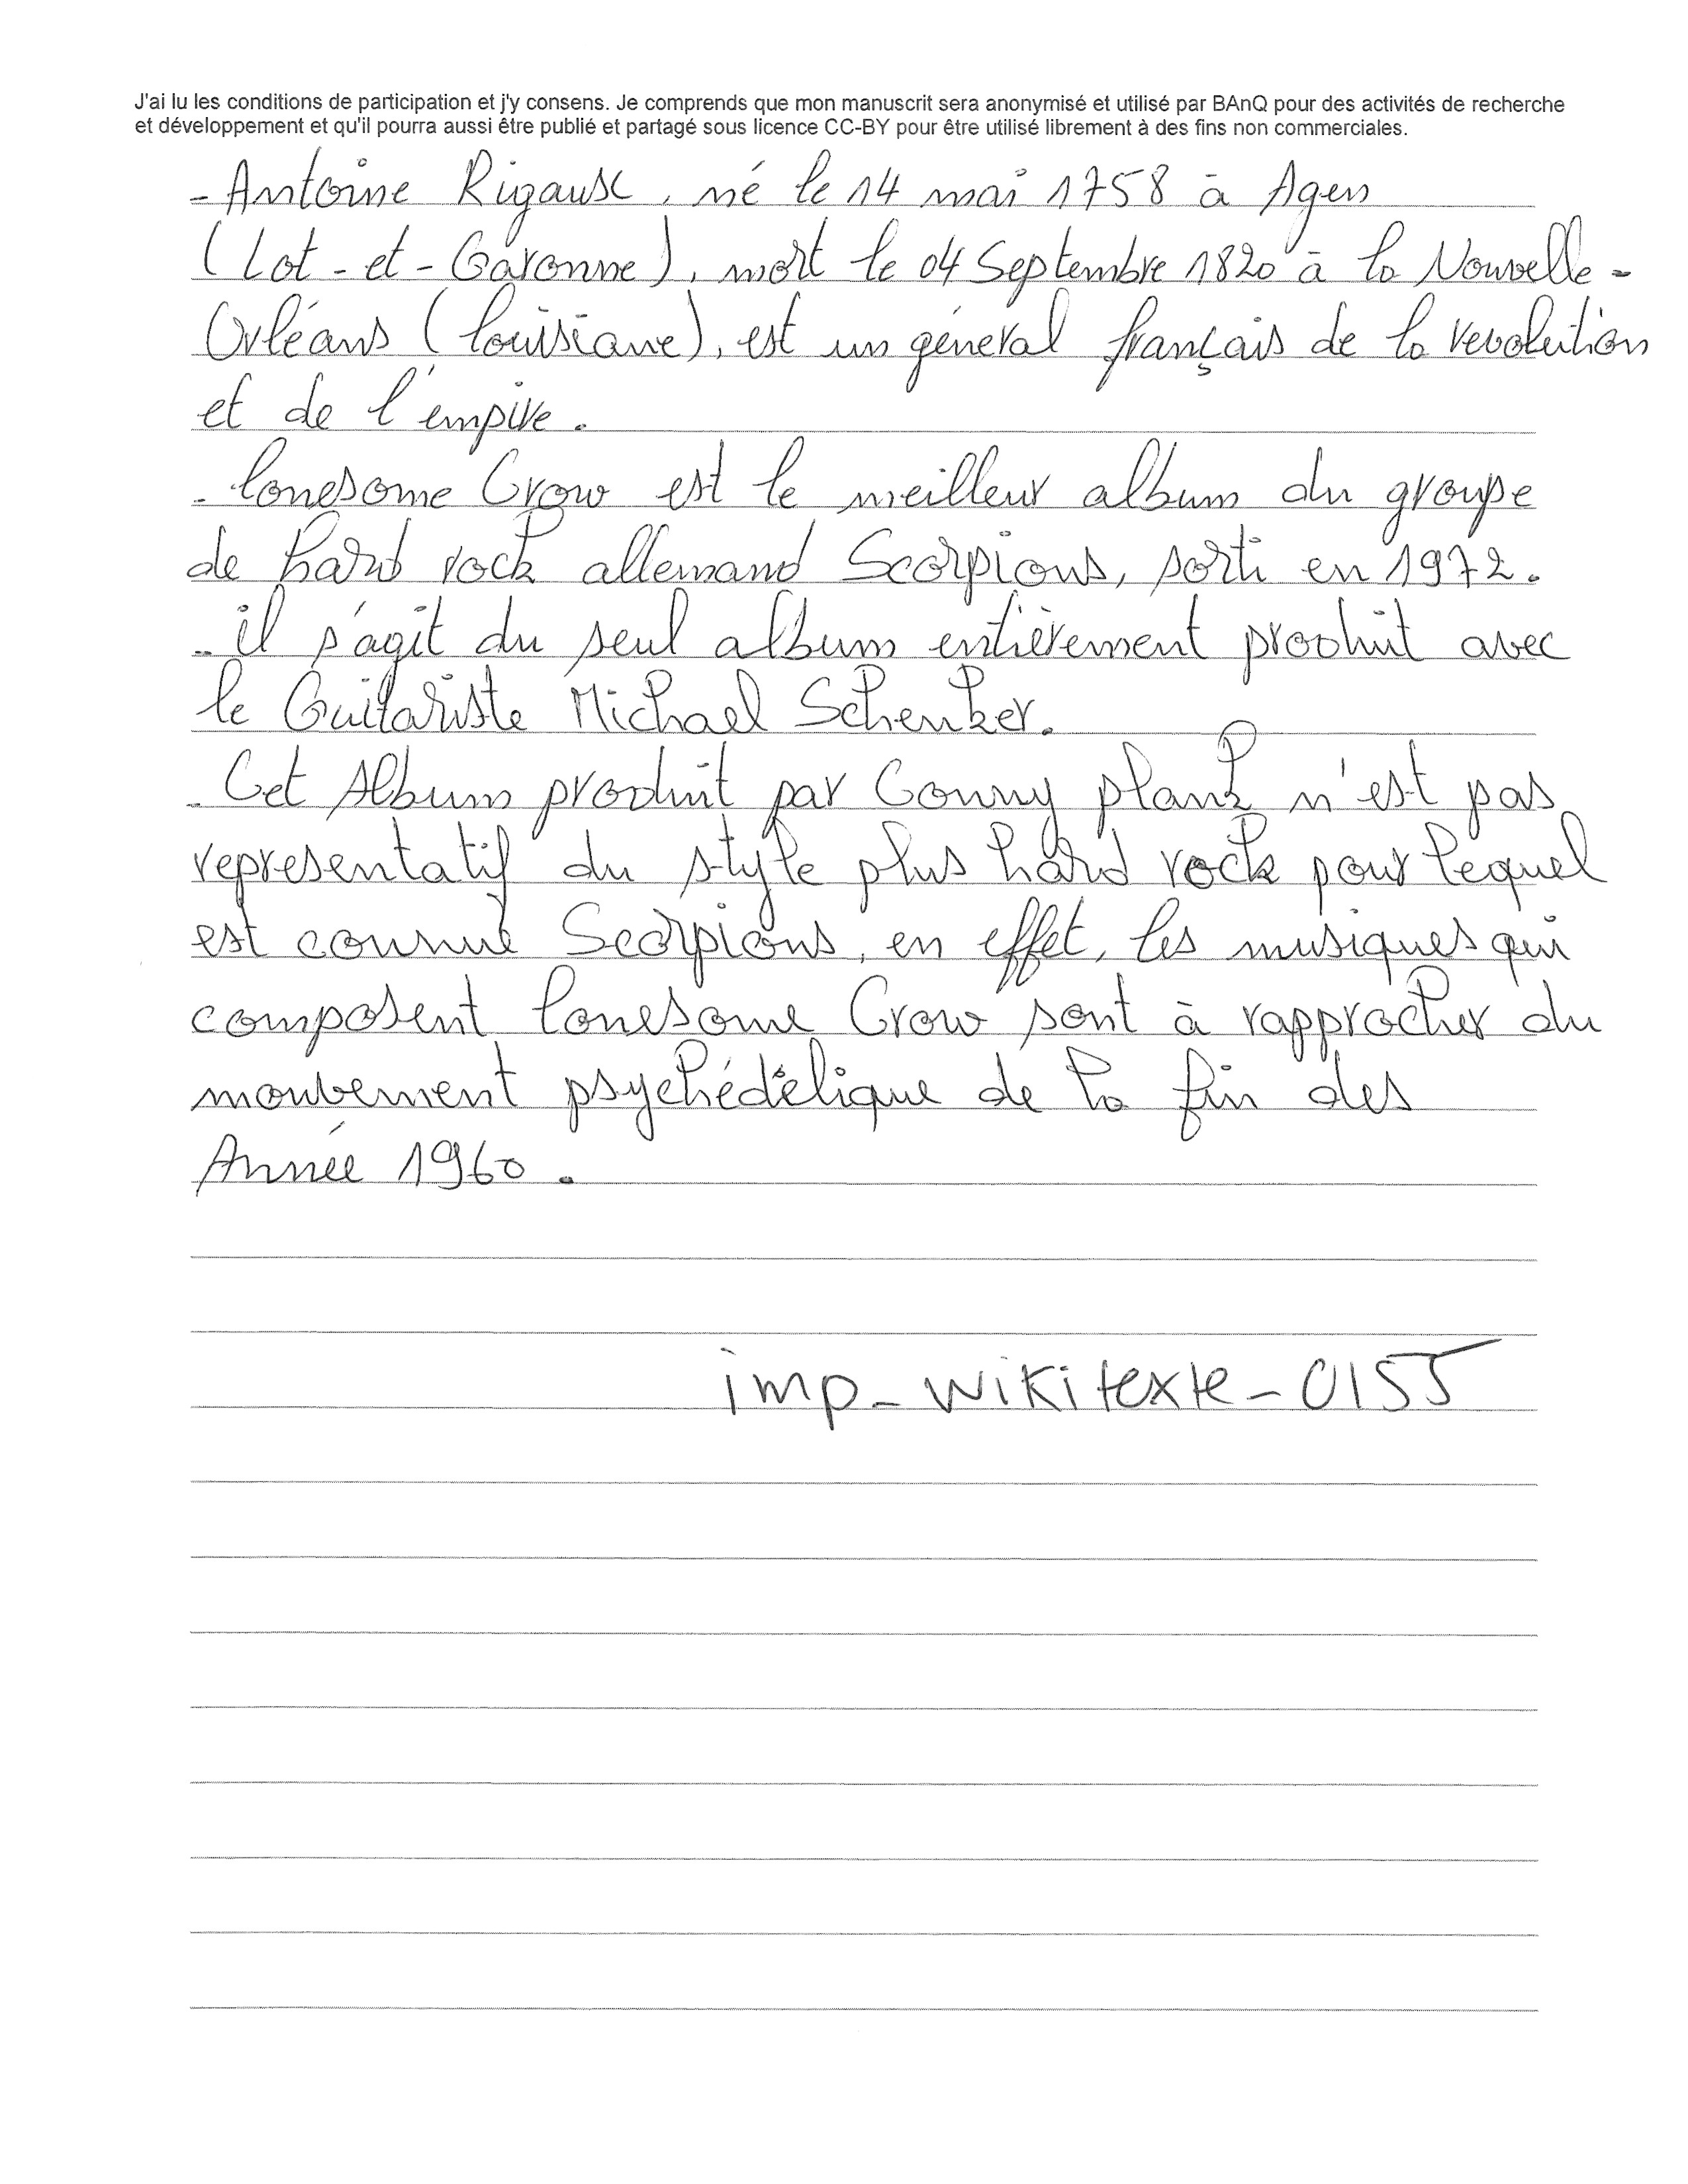 J'ai lu les conditions de participation et j'y consens. Je comprends que mon manuscrit sera anonymisé et utilisé par BAnQ pour des activités de recherche
et développement et qu'il pourra aussi être publié et partagé sous licence CC-BY pour être utilisé librement à des fins non commerciales.
- Antoine Rigaux, né le 14 mai 1758 à Agen
(Lot-et-Garonne), mort le 04 Septembre 1820 à la Nouvelle-
Orléans (louisiane), est un général français de la revolution
et de l'empire.
- lonesome Crow est le meilleur album du groupe
de hard rock allemand Scorpions, sorti en 1972.
- il s'agit du seul album entièrement produit avec
le Guitariste Michael Schenker.
- Cet Album produit par Conny plank n'est pas
representatif du style plus hard rock pour lequel
est connue Scorpions, en effet, les musiques qui
composent lonesome Crow sont à rapprocher du
mouvement psychédélique de la fin des
Année 1960.
imp_wikitexte-0155